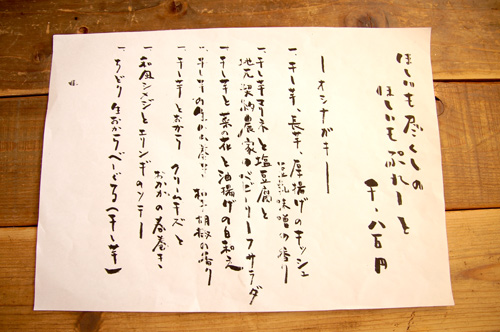 ほしいも尽くしの
ほしいもぷれーと
千、八百円
ーオシナガキー
一、干し芋、長芋、厚揚げのキッシュ
豆乳味噌の香り
一、干し芋マリネと塩豆腐と
地元契約農家のベビーリーフサラダ
一、干し芋と菜の花と油揚げの白和え
一、干し芋の生ハム巻き 和胡椒の香り
一、干し芋とおから クリームチーズと
おかかの春巻き
一、和風レンジとエリンギのソテー
一、ちどり 生おからべーぐる(干し芋)